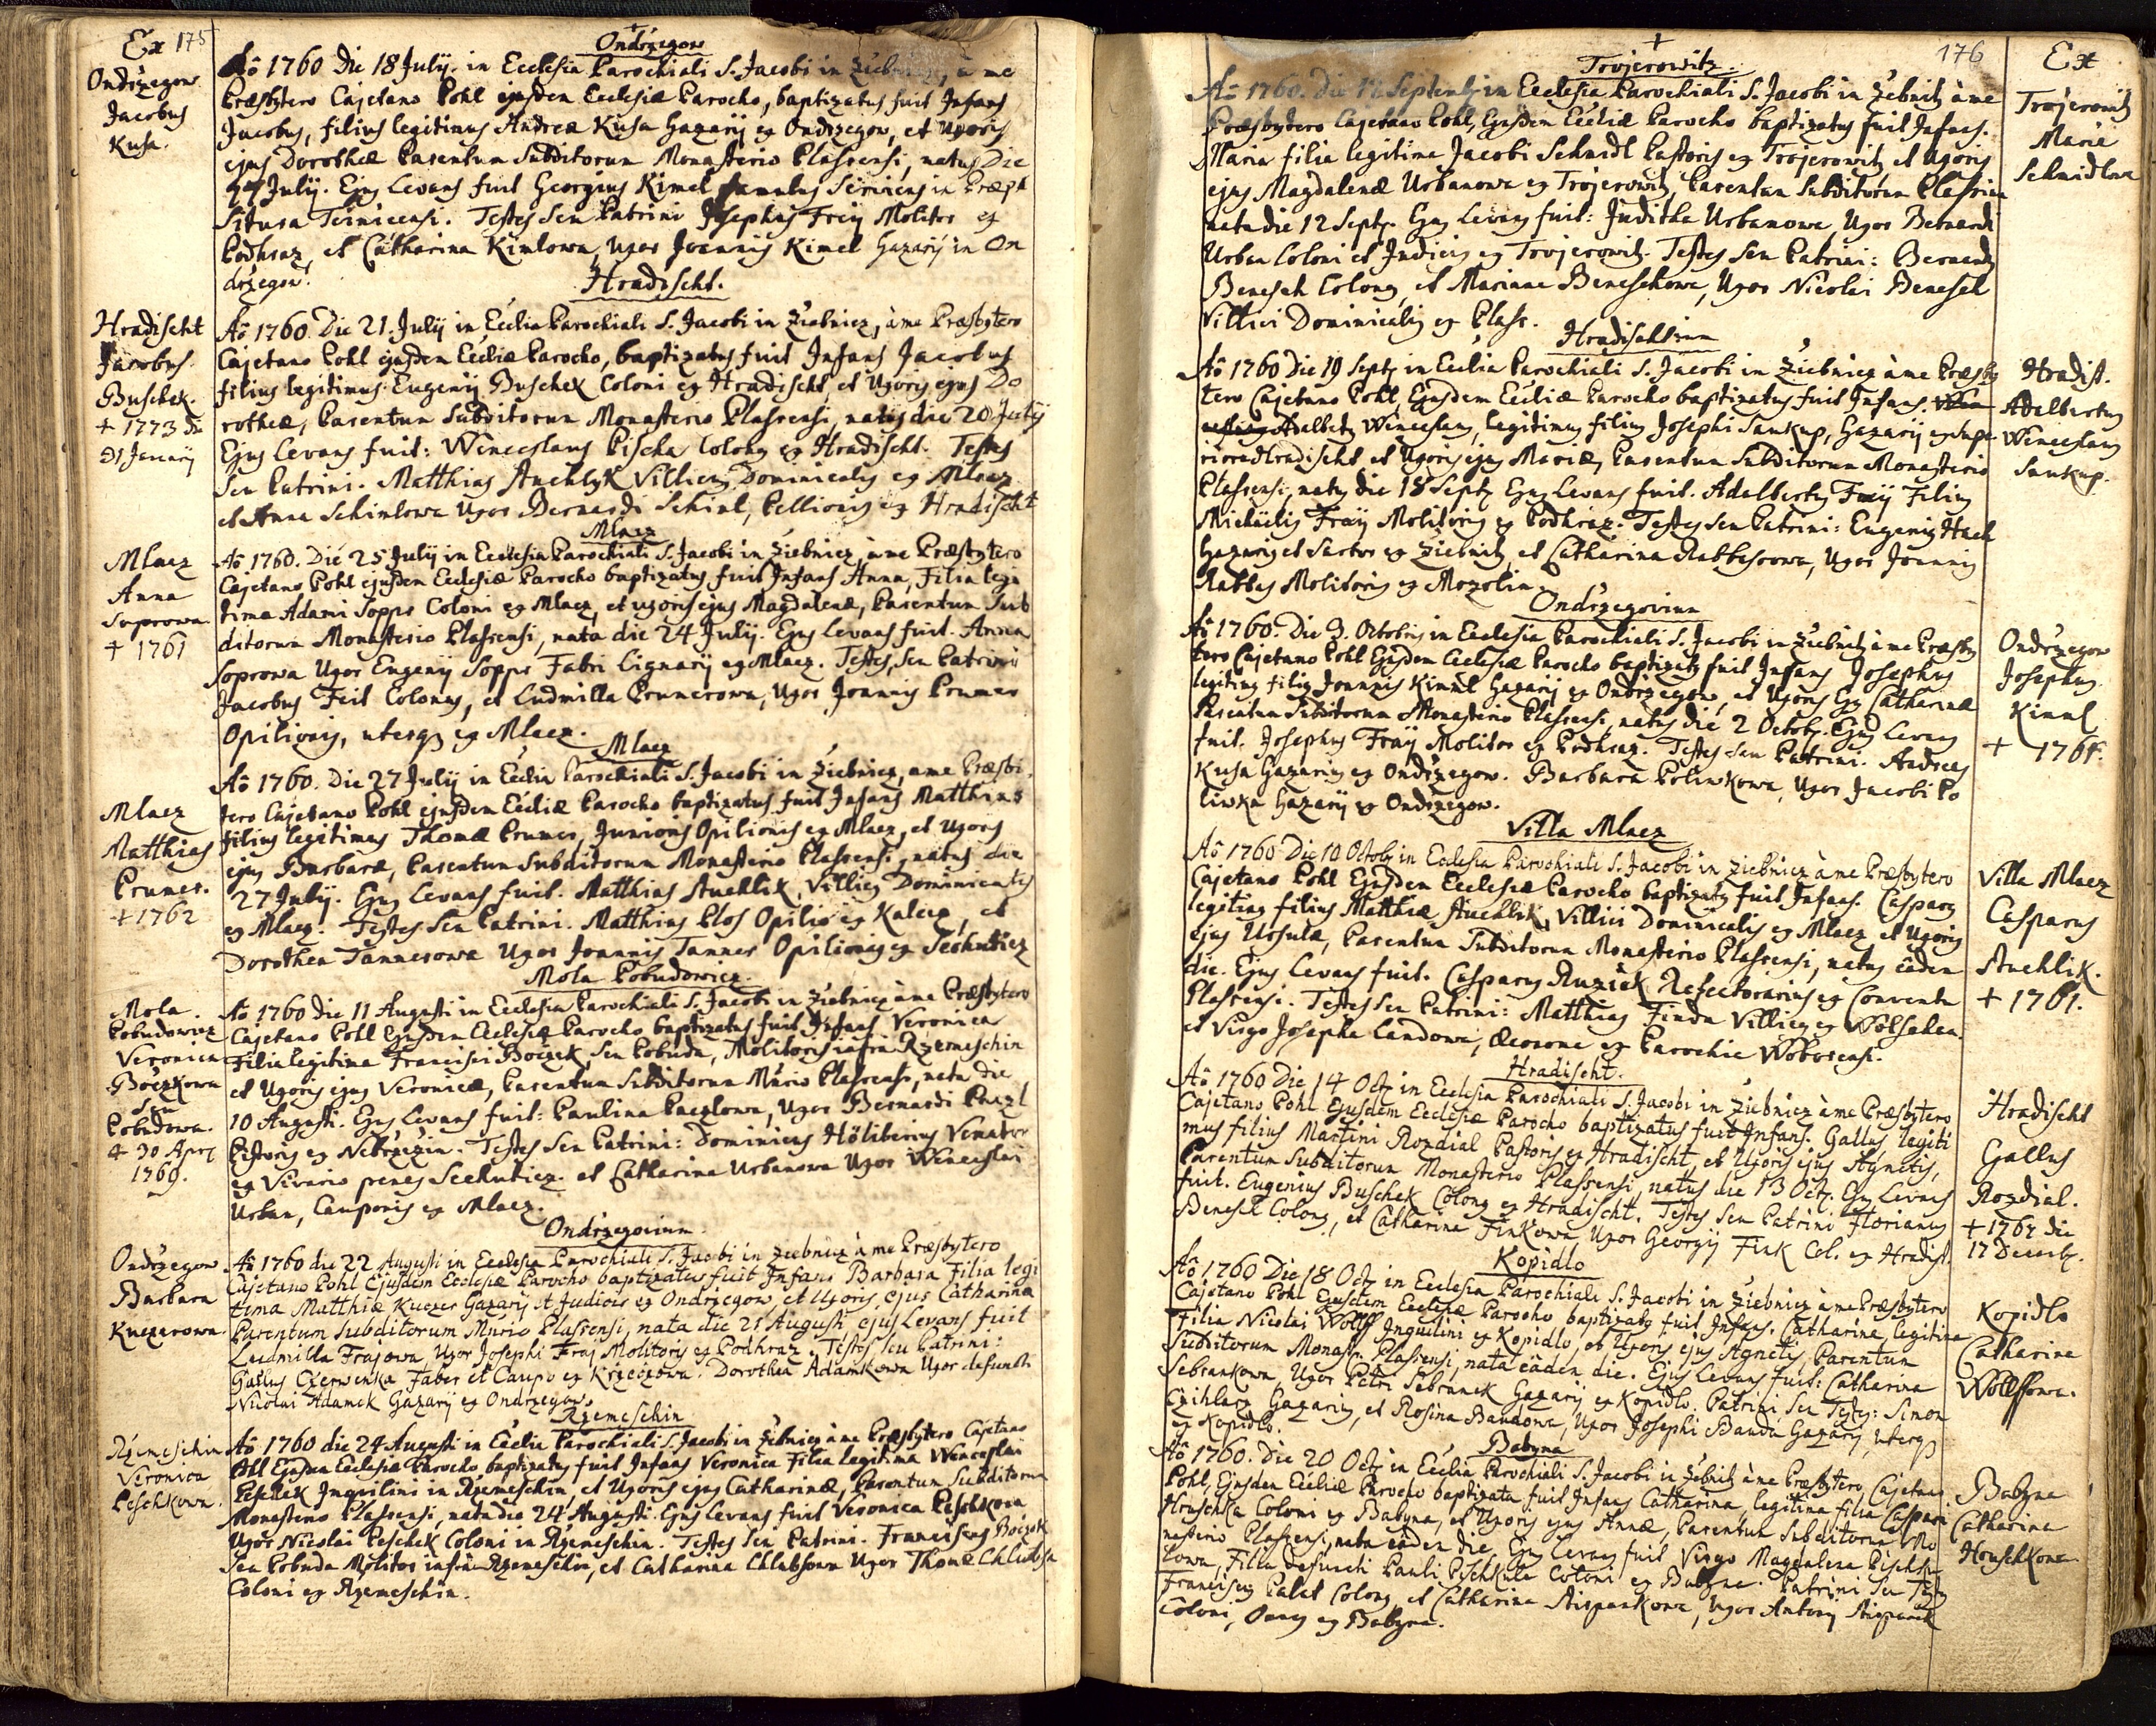 Ex 175
Ondrzegow
Jacobus
Kusa.
Ondrzegow
Aõ 1760 Die 18 Julij. in Ecclesia Parochiali S. Jacobi in à me
Præsbytero Cajetano Pohl ejusdem Ecclesiæ Parocho, baptizatus fuit Infans
Jacobus, filius legitimus Andreæ Kusa Hazarij ex Ondrzegow, et Uxoris
ejus Dorotheæ Parentum Subditorum Monasterio Plassensi, natus Die
Julij. Ejus Levans fuit Georgius Kimel famulus Serviens in Præpo
situra Teinicensi. Testes Seu Patrini Josephus Fraij Molitor ex
Podhraz, et Catharina Kimlowa, Uxor Joannis Kimel Hazarij in On
drzegow.
Hradischt
Jacobus
Buschek.
+ 1773 die
21 Januarij
Hradischt.
Aõ 1760. Die 21. Julij in Ecclia Parochiali S. Jacobi in Ziebnicz, à me Præsbytero
Cajetano Pohl ejusdem Eccliæ Parocho, baptizatus fuit Infans Jacobus
filius legitimus Eugenij Buschek Coloni ex Hradischt, et Uxoris ejus Do
rotheæ, Parentum Subditorum Monasterio Plassensi, natus die 20 Julij
Ejus Levans fuit: Wenceslaus Pischa Colonus ex Hradischt. Testes
Seu Patrini. Matthias Auchlik Villicus Dominicalis ex Mlacz
et Anna Schimlowa Uxor Bernardi Schiml, Pellionis ex Hradischt
Mlacz
Anna
Soprowa
+ 1761
Mlacz
Aõ 1760. Die 25 Julij in Ecclesia Parochiali S. Jacobi in Ziebnicz, à me Præsbytero
Cajetano Pohl ejusdem Ecclesiæ Parocho baptizatus fuit Infans Anna, Filia legi
tima Adami Soppr Coloni ex Mlacz, et uxoris ejus Magdalenæ, Parentum Sub
ditorum Monasterio Plassensi, nata die 24 Julij. Ejus Levans fuit. Anna
Soprowa Uxor Eugenij Soppr Fabri Lignarij ex Mlacz. Testes, Seu Patrini
Jacobus Feit Colonus, et Ludmilla Prunerowa, Uxor Joannis Pruner
Opilionis, uterq ex Mlacz.
Mlacz
Matthias
Pruner.
+ 1762
Mlacz
Aõ 1760. Die 27 Julij in Ecclia Parochiali S. Jacobi in Ziebnicz, a me Præsbi
tero Cajetano Pohl ejusdem Eccliæ Parocho baptizatus fuit Infans Matthias
filius legitimus Thomæ Pruner, Junioris Opilionis ex Mlacz, et Uxoris
ejus Barbaræ, Parentum Subditorum Monasterio Plassensi, natus die
27 Julij. Ejus Levans fuit. Matthias Auchlik, Villicus Dominicalis
ex Mlacz. Testes Seu Patrini. Matthias Plos Opilio ex Kalecz, et
Dorothea Tannerowa Uxor Joannis Tanner Opilionis ex Sechuticz
Mola
Pobudowicz
Veronica
Boczkowa
Seu
Pobudowa.
+ 30 Apr
1769.
Mola Pobudowicz.
Aõ 1760 die 11 Augusti in Ecclesia Parochiali S. Jacobi in Ziebnicz à me Præsbytero
Cajetano Pohl Ejusdem Ecclesiæ Parocho baptizatus fuit Infans Veronica
Filia legitima Francisci Boczek, Seu Pobuda, Molitoris infra Rzemeschin
et Uxoris ejus Veronicæ, Parentum Subditorum Mnrio Plassensi, nata die
10 Augusti. Ejus Levans fuit: Paulina Paczlowa, Uxor Bernardi Paczl
Pistoris ex Nebrzizin. Testes Seu Patrini: Dominicus Höliberius Venator
ex Vivario penes Sechuticz. et Catharina Urbanowa Uxor Wenceslai
Urban, Cauponis ex Mlacz.
Ondrzegow
Barbara
Kuczerowa.
Ondrzegovium.
Aõ 1760 die 22 Augusti in Ecclesia Parochiali S. Jacobi in Ziebnicz à me Præsbytero
Cajetano Pohl Ejusdem Ecclesiæ Parocho baptizatus fuit Infans Barbara Filia legi
tima Matthiæ Kuczer Hazarij et Judicis ex Ondrzegow, et Uxoris, ejus Catharinæ
Parentum Subditorum Mnrio Plassensi, nata die 21 Augusti ejus Levans fuit
Ludmilla Frajowa, Uxor Josephi Fraj Molitoris ex Podhraz. Testes Seu Patrini:
Gallus Czerwenka Faber et Caupo ex Krzeczowa. Dorothea Adamkowa Uxor defuncti
Nicolai Adamek Hazarij ex Ondrzegow.
Rzemeschin
Veronica
Peschkowa.
Rzemeschin
Aõ 1760 die 24 Augusti in Ecclia Parochiali S. Jacobi in Zebnicz à me Præsbytero Cajetano
Pohl Ejusdem Ecclesiæ Parocho baptizatus fuit Infans Veronica Filia legitima Wenceslai
Peschek Inquilini in Rzemeschin, et Uxoris ejus Catharinæ, Parentum Subditorum
Monasterio Plassensi, nata die 24 Augusti. Ejus Levans fuit Veronica Peschkova
Uxor Nicolai Peschek Coloni in Rzemeschin. Testes Seu Patrini. Franciscus Boczek
Seu Pobuda Molitor infra Rzemeschin, et Catharina Chlubsowa Uxor Thomæ Chlubsa
Coloni ex Rzemeschin.
176
Ex
Trojerowitz
Maria
Schmidlowa
Trojerowitz.
Aõ 1760. Die 12 Septemb in Ecclesia Parochiali S. Jacobi in Zebnitz à me
Præsbytero Cajetano Pohl, Ejusdem Eccliæ Parocho baptizatus fuit Infans.
Maria filia legitima Jacobi Schmidl Pastoris ex Trojerowitz et Uxoris
ejus Magdalenæ Urbanowa ex Trojerowitz, Parentum Subditorum Plassens
nata die 12 Septb. Ejus Levans fuit: Juditha Urbanowa, Uxor Bernardi
Urban Coloni et Judicis ex Trojerowitz. Testes Seu Patrini: Bernardus
Benesch Colonus, et Mariana Beneschowa, Uxor Nicolai Benesch
Villici Dominicalis ex Plass.
Hradist.
Adalbertus
Wenceslaus
Saukup.
Hradischtium
Aõ 1760 Die 19 Septb in Ecclia Parochiali S. Jacobi in Ziebnicz à me Præsby
tero Cajetano Pohl, Ejusdem Eccliæ Parocho baptizatus fuit Infans.
Adalbertus Wenceslaus, legitimus filius Josephi Saukup, Hazarij ex Supe
riore Hradischt et Uxoris ejus Mariæ, Parentum Subditorum Monasterio
Plassensi, natus die 18 Septb Ejus Levans fuit. Adalbertus Fraij Filius
Michaelis Fraij Molitoris ex Podhraz. Testes Seu Patrini: Eugenius Hach
Hazarius et Sartor ex Ziebnitz, et Catharina Rabbasowa, Uxor Joannis
Rabbas Molitoris ex Mozolin.
Ondrzegow
Josephus
Kimml
+ 1764.
Ondrzegovium
Aõ 1760. Die 3. Octobris in Ecclesia Parochiali S. Jacobi in Ziebnitz à me Præsby
tero Cajetano Pohl Ejusdem Ecclesiæ Parocho baptizatus fuit Infans Josephus
legitimus filius Joannis Kimml Hazarij ex Ondrzegow, et Uxoris Ejus Catharinæ
Parentum Subditorum Monasterio Plassensi, natus die 2 Octob. Ejus Levans
fuit. Josephus Fraij Molitor ex Podhraz. Testes Seu Patrini. Andreas
Kusa Hazarius ex Ondrzegow. Barbara Poliwkowa, Uxor Jacobi Po
liwka Hazarij ex Ondrzegow.
Villa Mlacz
Casparus
Auchlik.
+ 1761.
Villa Mlacz
Aõ 1760 Die 10 Octob in Ecclesia Parochiali S. Jacobi in Ziebnicz à me Præsbytero
Cajetano Pohl Ejusdem Ecclesiæ Parocho baptizatus fuit Infans. Casparus
legitimus filius Matthiæ Auchlik, Villici Dominicalis ex Mlacz et Uxoris
ejus Ursulæ, Parentum Subditorum Monasterio Plassensi, natus eâdem
die. Ejus Levans fuit. Casparus Ruzick Refectorarius ex Conventu
Plassensi. Testes Seu Patrini: Matthias Finda Villicus ex
et Virgo Josepha Landowa, Œconoma ex Parochia Woborensi.
Hradischt
Gallus
Rozdial.
+ 1767 die
17 Decemb.
Hradischt.
Aõ 1760 Die 14 Octb in Ecclesia Parochiali S. Jacobi in Ziebnicz à me Præsbytero
Cajetano Pohl Ejusdem Ecclesiæ Parocho baptizatus fuit Infans. Gallus legiti
mus filius Martini Rozdial Pastoris ex Hradischt, et Uxoris ejus Agnetis,
Parentum Subditorum Monasterio Plassensi, natus die 13 Octb. Ejus Levans
fuit. Eugenius Buschek Colonus ex Hradischt. Testes Seu Patrini Florianus
Benesch Colonus, et Catharina Finkowa, Uxor Georgij Fink Col. ex Hradist.
Kopidlo
Catharina
Wolffowa.
Kopidlo
Aõ 1760 Die 18 Octb in Ecclesia Parochiali S. Jacobi in Ziebnicz à me Præsbytero
Cajetano Pohl Ejusdem Ecclesiæ Parocho baptizatus fuit Infans. Catharina, legitima
Filia Nicolai Wolff Inquilini ex Kopidlo, et Uxoris ejus Agnetis, Parentum
Subditorum Monastr. Plassensi, nata eâdem die. Ejus Levans fuit: Catharina
Sebrankowa, Uxor Petri Sebranek Hazarij ex Kopidlo. Patrini Seu Testes: Simon
Czihlarz Hazarius, et Rosina Baudowa, Uxor Josephi Bauda Hazarij, uterq
ex Kopidlo.
Babyna
Catharina
Hruschkowa
Babyna
Aõ 1760. Die 20 Octb in Ecclia Parochiali S. Jacobi in Zebnitz à me Præsbytero, Cajetano
Pohl, Ejusdem Eccliæ Parocho baptizata fuit Infans Catharina, legitima filia Caspari
Hruschka Coloni ex Babyna, et Uxoris ejus Annæ, Parentum Subditorum Mo
nasterio Plassensi, nata eâdem die. Ejus Levans fuit Virgo Magdalena Pischku
lowa, Filia defuncti Pauli Pischkule Coloni ex Babyna. Patrini Seu Testes
Franciscus Palat Colonus, et Catharina Uxor Antonij
Coloni, Omnes ex Babyna.